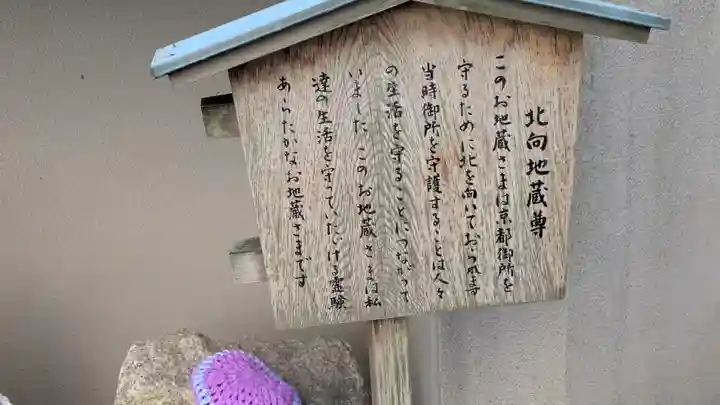 北向地蔵尊
このお地蔵さまは京都御所を
守るために北を向いておられます
当時御所を守護することは人々
の生活を守ることにつながって
いました このお地蔵さまは私
達の生活を守っていただける霊験
あらたかなお地蔵さまです